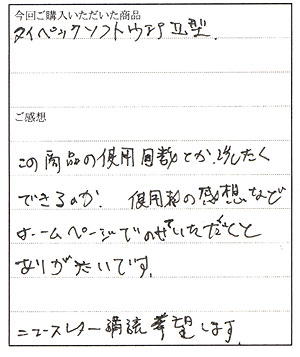 今回ご購入いただいた商品
タイベックソフトウェアⅡ型.
ご感想
この商品の使用回数とか、洗たく
できるのか. 使用者の感想など
ホームページでのせていただくと
ありがたいです.
ニュースレター購読希望します.